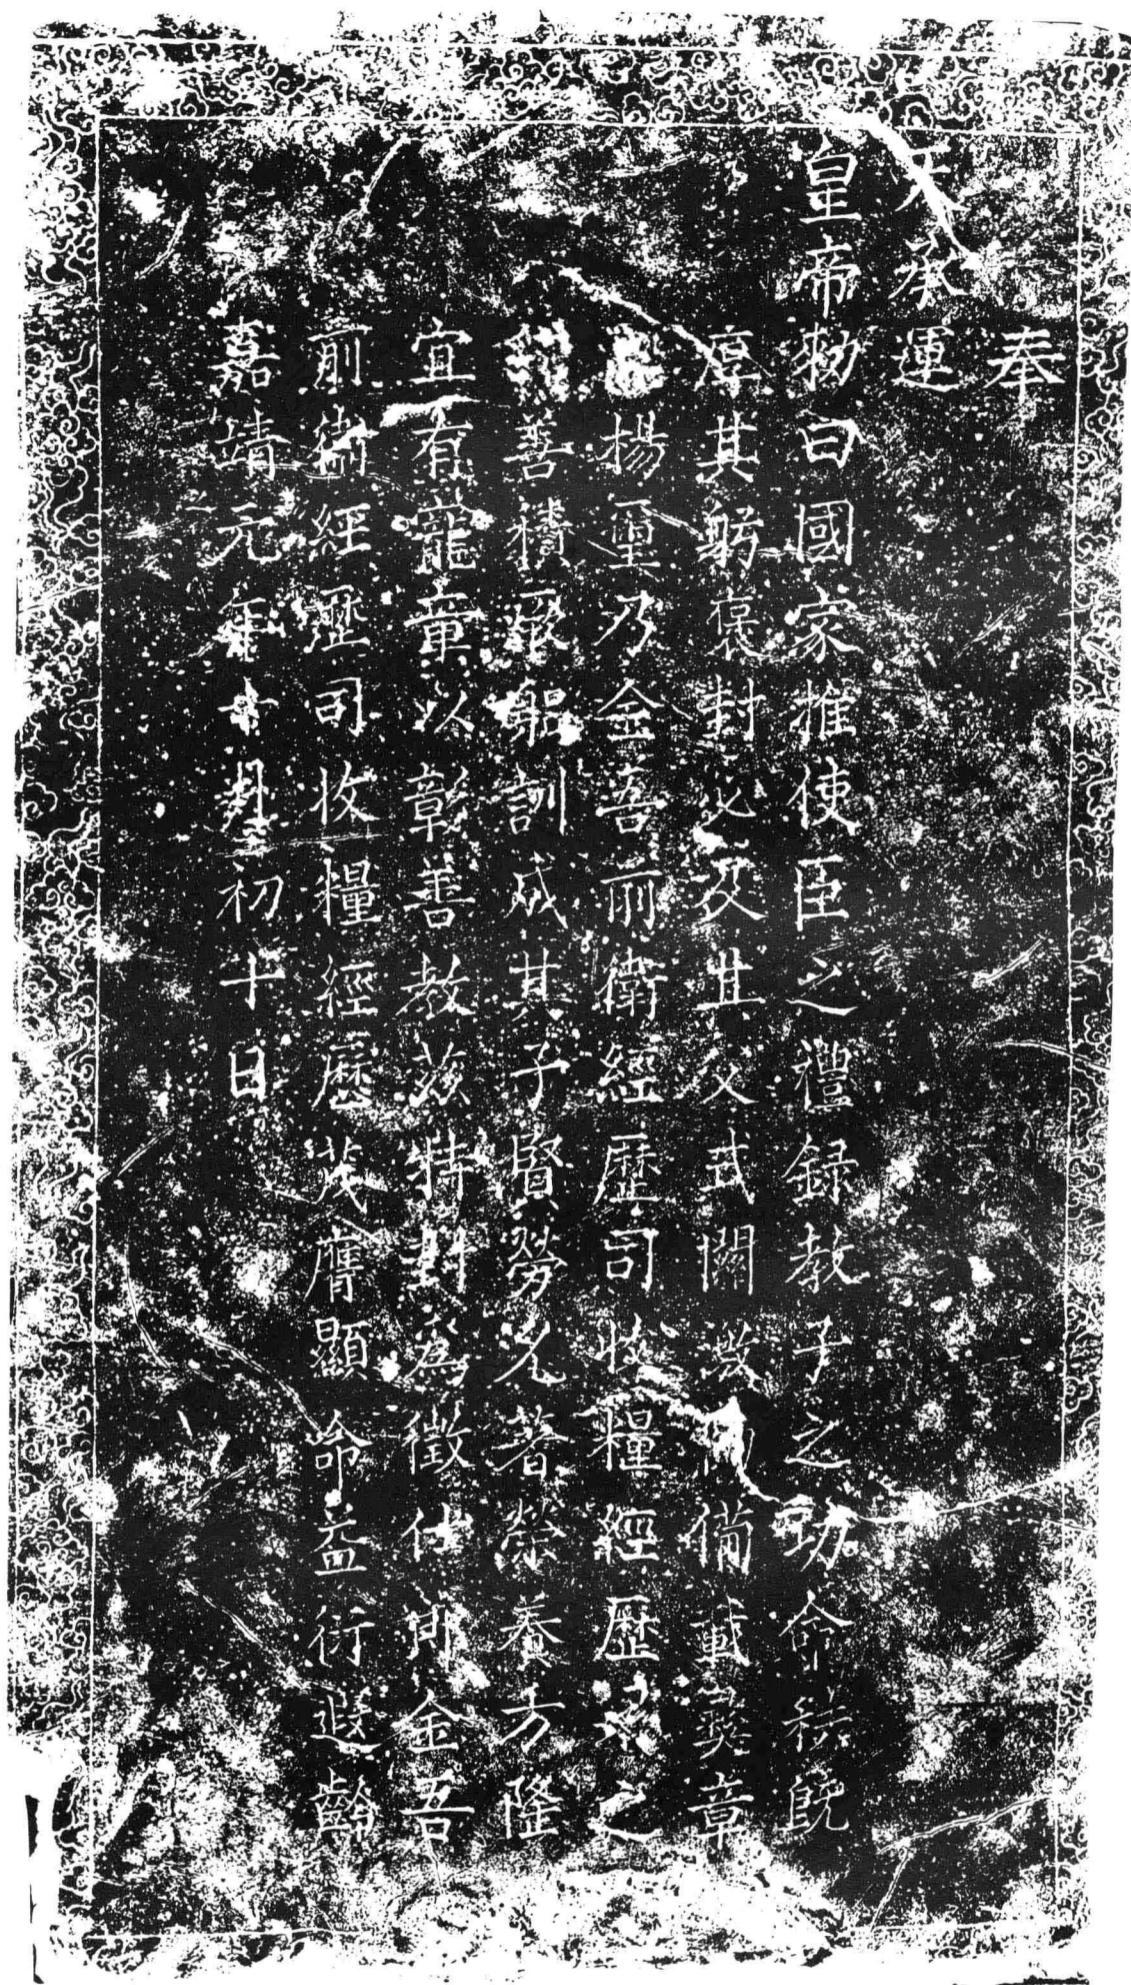 奉
天承運
皇帝勑曰國家推使臣之禮録教子之功命秩既
厚其躬褒封必及其父式闡 備載奬章
揚璽乃金吾前衛經歷司收糧經歷 之
善積厥躬訓成其子賢勞克著榮養方隆
宜有寵章以彰善教茲特封爲徵仕郎金吾
前衛經歷司收糧經歷茂膺顯命益衍遐齡
嘉靖元年十月初十日